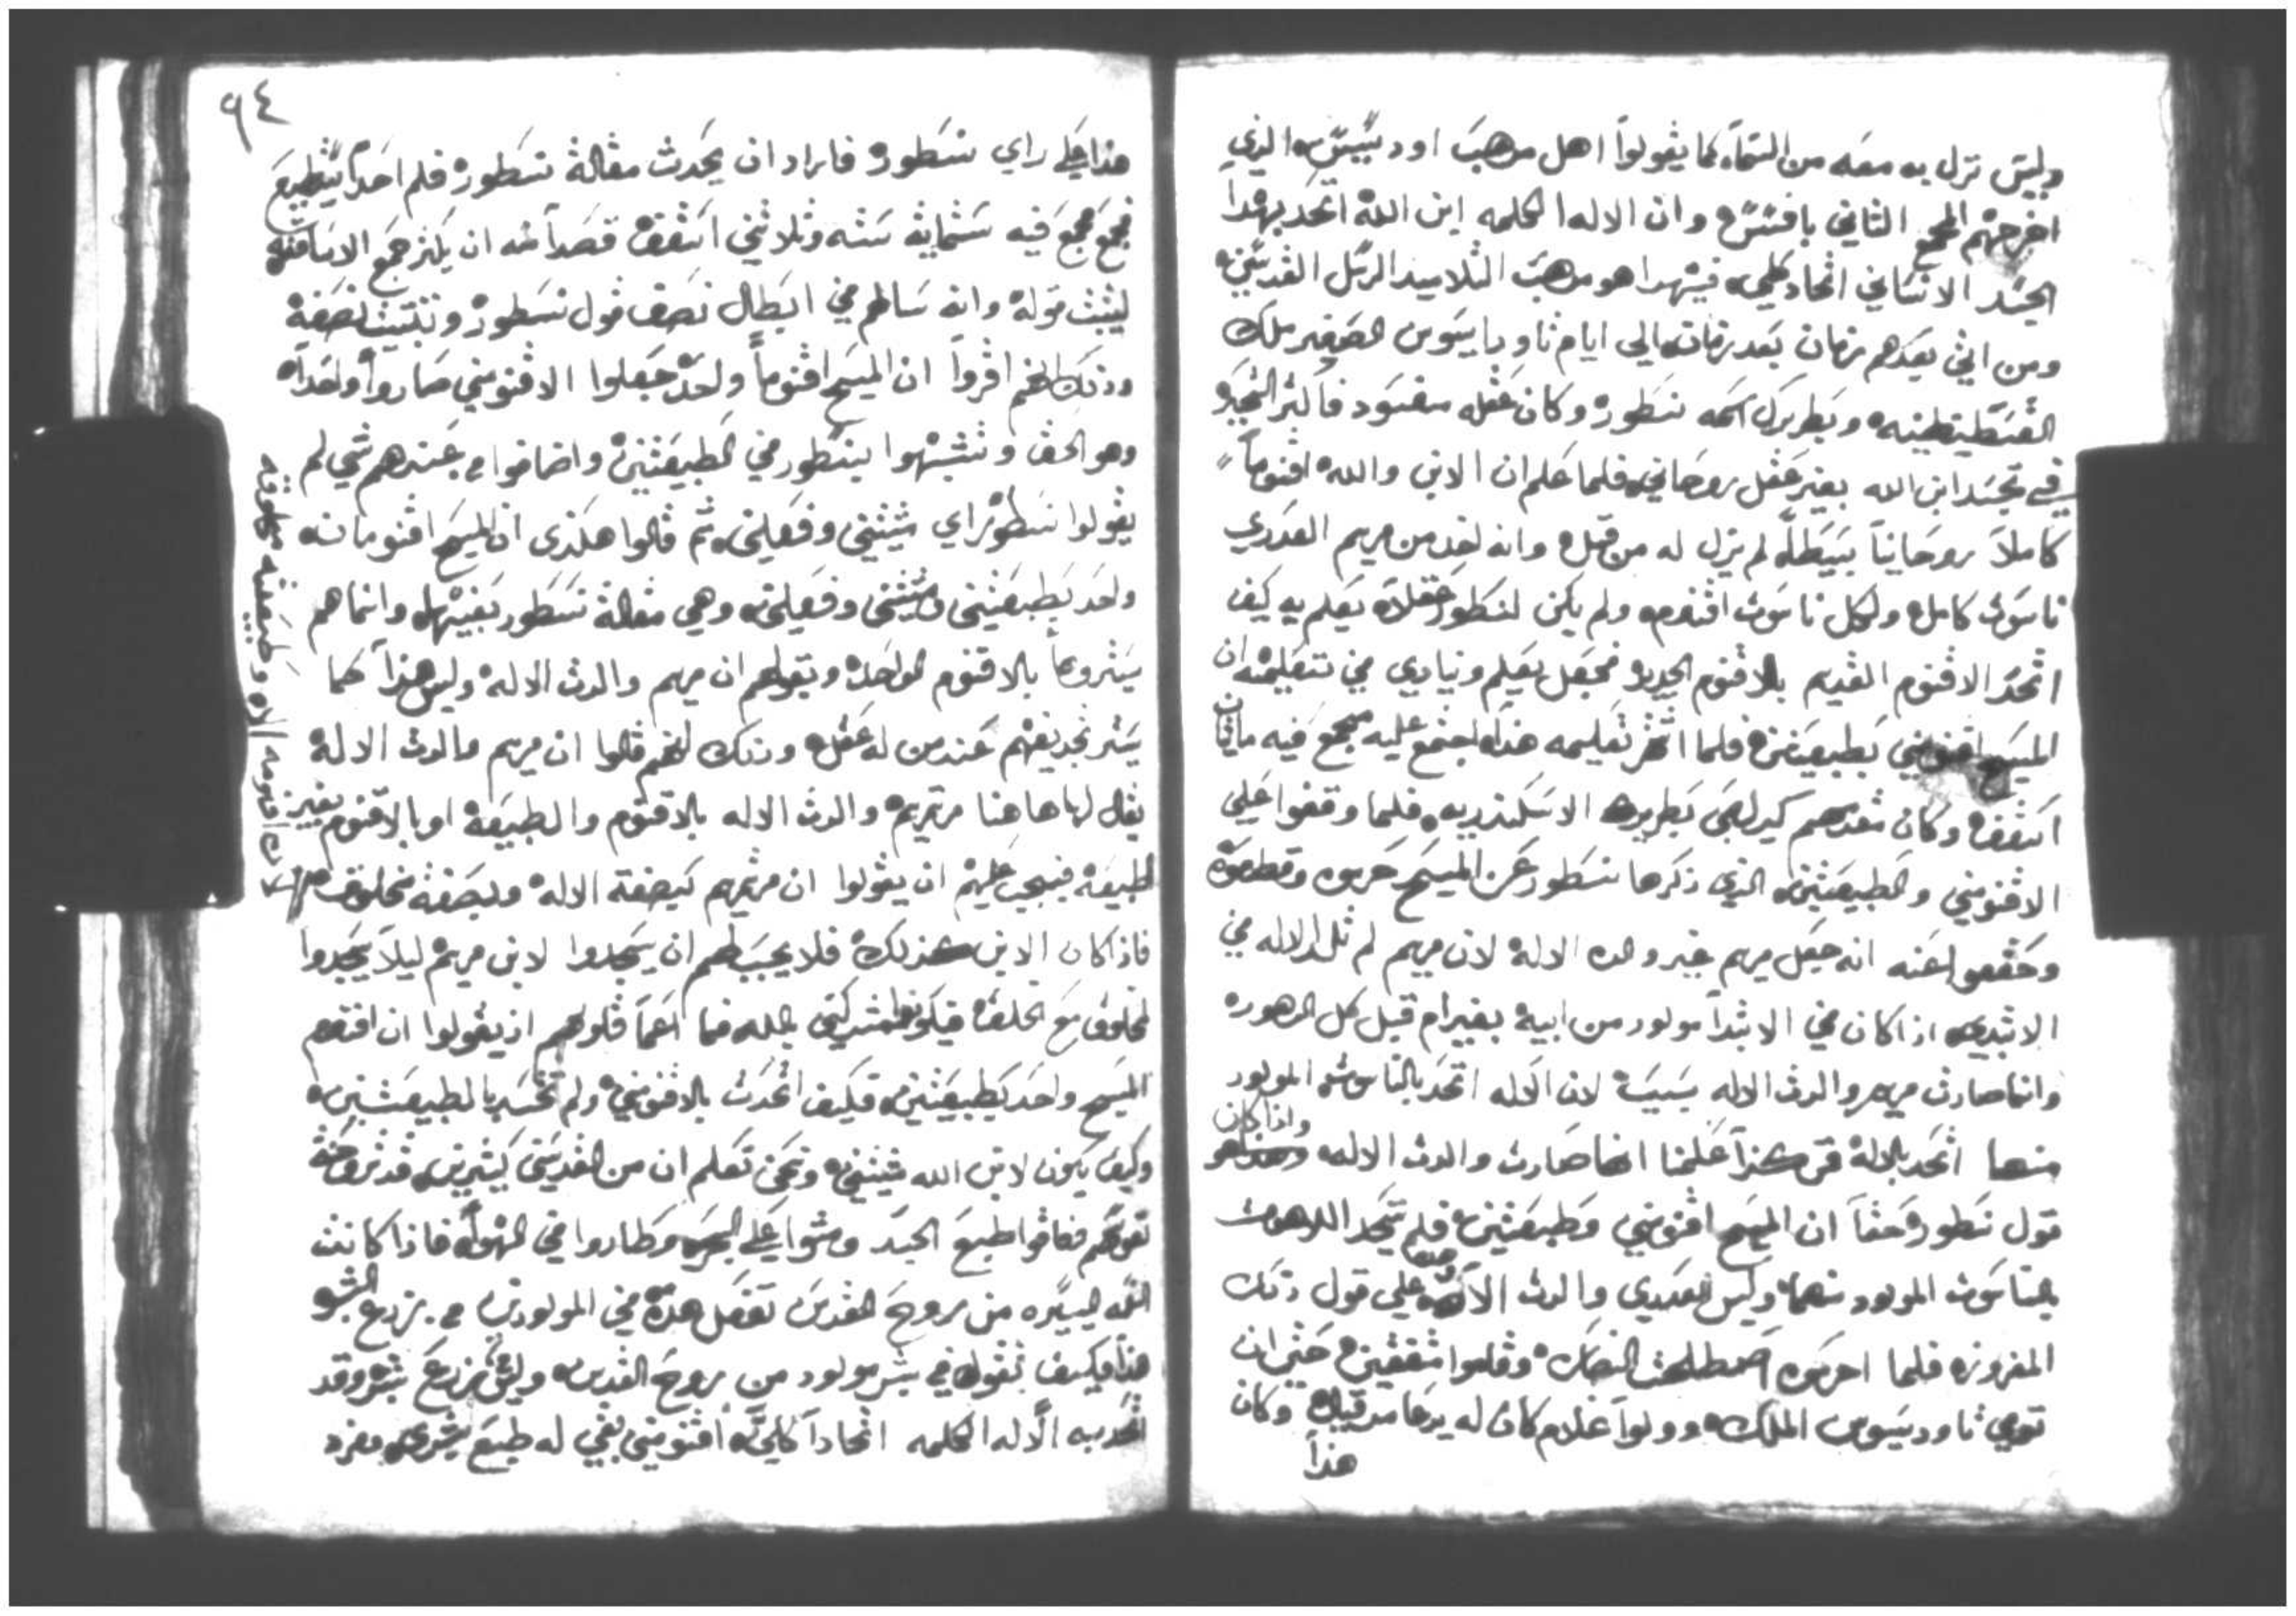 وليس نزل به معه من السماء كما يقولوا اهل مدهب اوديبيس الذي
اخرجهم المجمع الثاني بافسس وان الاله الكلمه ابن الله اتحد بهدا
الجسد الانساني اتحاد كلي فبهدا هو مدهب التلاميد الرسل القديسين
ومن اتي بعدهم زمان بعد زمان الي ايام تاودا يسوس الصغير ملك
القسطنطينيه وبطريرك اسمه نسطور وكان عقله مفسود فاكثر التجبر
في تجسد ابن الله بغير عقل روحاني فلما علم ان الابن والله اقنوماً
كاملاً روحانياً بسيطاً لم يزل له من قبل وانه اخد من مريم العدري
ناسوت كامل ولكل ناسوت اقنوم ولم يكن لنسطور عقلاً يعلم به كيف
اتحد الاقنوم القديم بالاقنوم الجديد فجعل يعلم وينادي في تعليمه ان
المسيح اقنومين بطبيعتين فلما اشهر تعليمه هدا اجتمع عليه مجمع فيه مايتان
اسقف وكان مقدمهم كيرلص بطريرك الاسكندريه فلما وقفوا علي
الاقنومين والطبيعتين الذي ذكرها نسطور عن المسيح حرموه وقطعوه
وحققوا عنه انه جعل مريم غير والده الاله لان مريم لم تلد الاله في
الابتدي اذا كان في الابتدا مولود من ابيه بغير ام قبل كل الدهور
وانما صارت مريم والدت الاله بسبب لان الاله اتحد بالناسوت المولود
منها اتحد بالاله فمن هكذا علمنا انها صارت والدت الاله واذا كان
قول نسطور حقاً ان المسيح اقنومين وطبيعتين فلم يتحد اللاهوت
بالناسوت المولود منها وليس العدري والدت الاله علي قول ذلك
المفروز فلما احرموه اصطلحت النصاره وقاموا متفقين حتي ان
توفي تاوديسوس الملك وولوا غلام كان له يدعا مرقيان وكان
هذا
٩٤
هذا علي راي نسطور فاراد ان يحدث مقالة نسطور فلم احداً يطيع
فجمع مجمع فيه ستماية سته وثلاثين اسقف قصداً منه ان يكثر جمع الاساقفه
ليثبت قوله وانه سالهم في ابطال نصف قول نسطور وتثبيت نصفه
وذلك انهم اقروا ان المسيح اقنوماً واحد جعلوا الاقنومين صاروا واحداً
وهو الحق وتشبهوا بنسطور في الطبيعتين واضافوا من عندهم شي لم
يقولوا نسطور اي مشيتين وفعلين ثم قالوا هكذي ان المسيح اقنومانه
واحد بطبيعتين ومشيتين وفعلين وهي مقالة نسطور بعينها وانما هم
يستروها بالاقنوم الواحد وبقولهم ان مريم والدت الاله وليس هذا كما
يستر تجديفهم عند من له عقل وذلك انهم قالوا ان مريم والدت الاله
يقال لها هاهنا مرتمريم والدت الاله بالاقنوم والطبيعة او بالاقنوم بغير
الطبيعة فيجب عليهم ان يقولوا ان مرتمريم نصفه الاله ونصفه مخلوق
فاذا كان الابن كذلك فلا يجب لهم ان يسجدوا لابن مريم ليلا يسجدوا
لمخلوق مع الخلق فيكونوا مشركين بالله فما اعما قلوبهم اذ يقولوا ان اقنوم
المسيح واحد بطبيعتين فكيف اتحدت بالاقنومين ولم تتحد بالطبيعتين
وكيف يكون لابن الله مشيتين ونحن نعلم ان من القديسين كثيرين قد تروحنة
نفوسهم ففاقوا طبع الجسد ومشوا علي البحر وطاروا في الهواء فاذا كانت
النعمه اليسيره من روح القدس تفعل هذه في المولودين من زرع البشر
هذا فكيف تقول في بشر مولود من روح القدس وليس من زرع بشر وقد
اتحد به الاله الكلمه اتحاداً كليا اقنومين بقي له طبع بشري مفرد
الاه وطبيعته مخلوقه